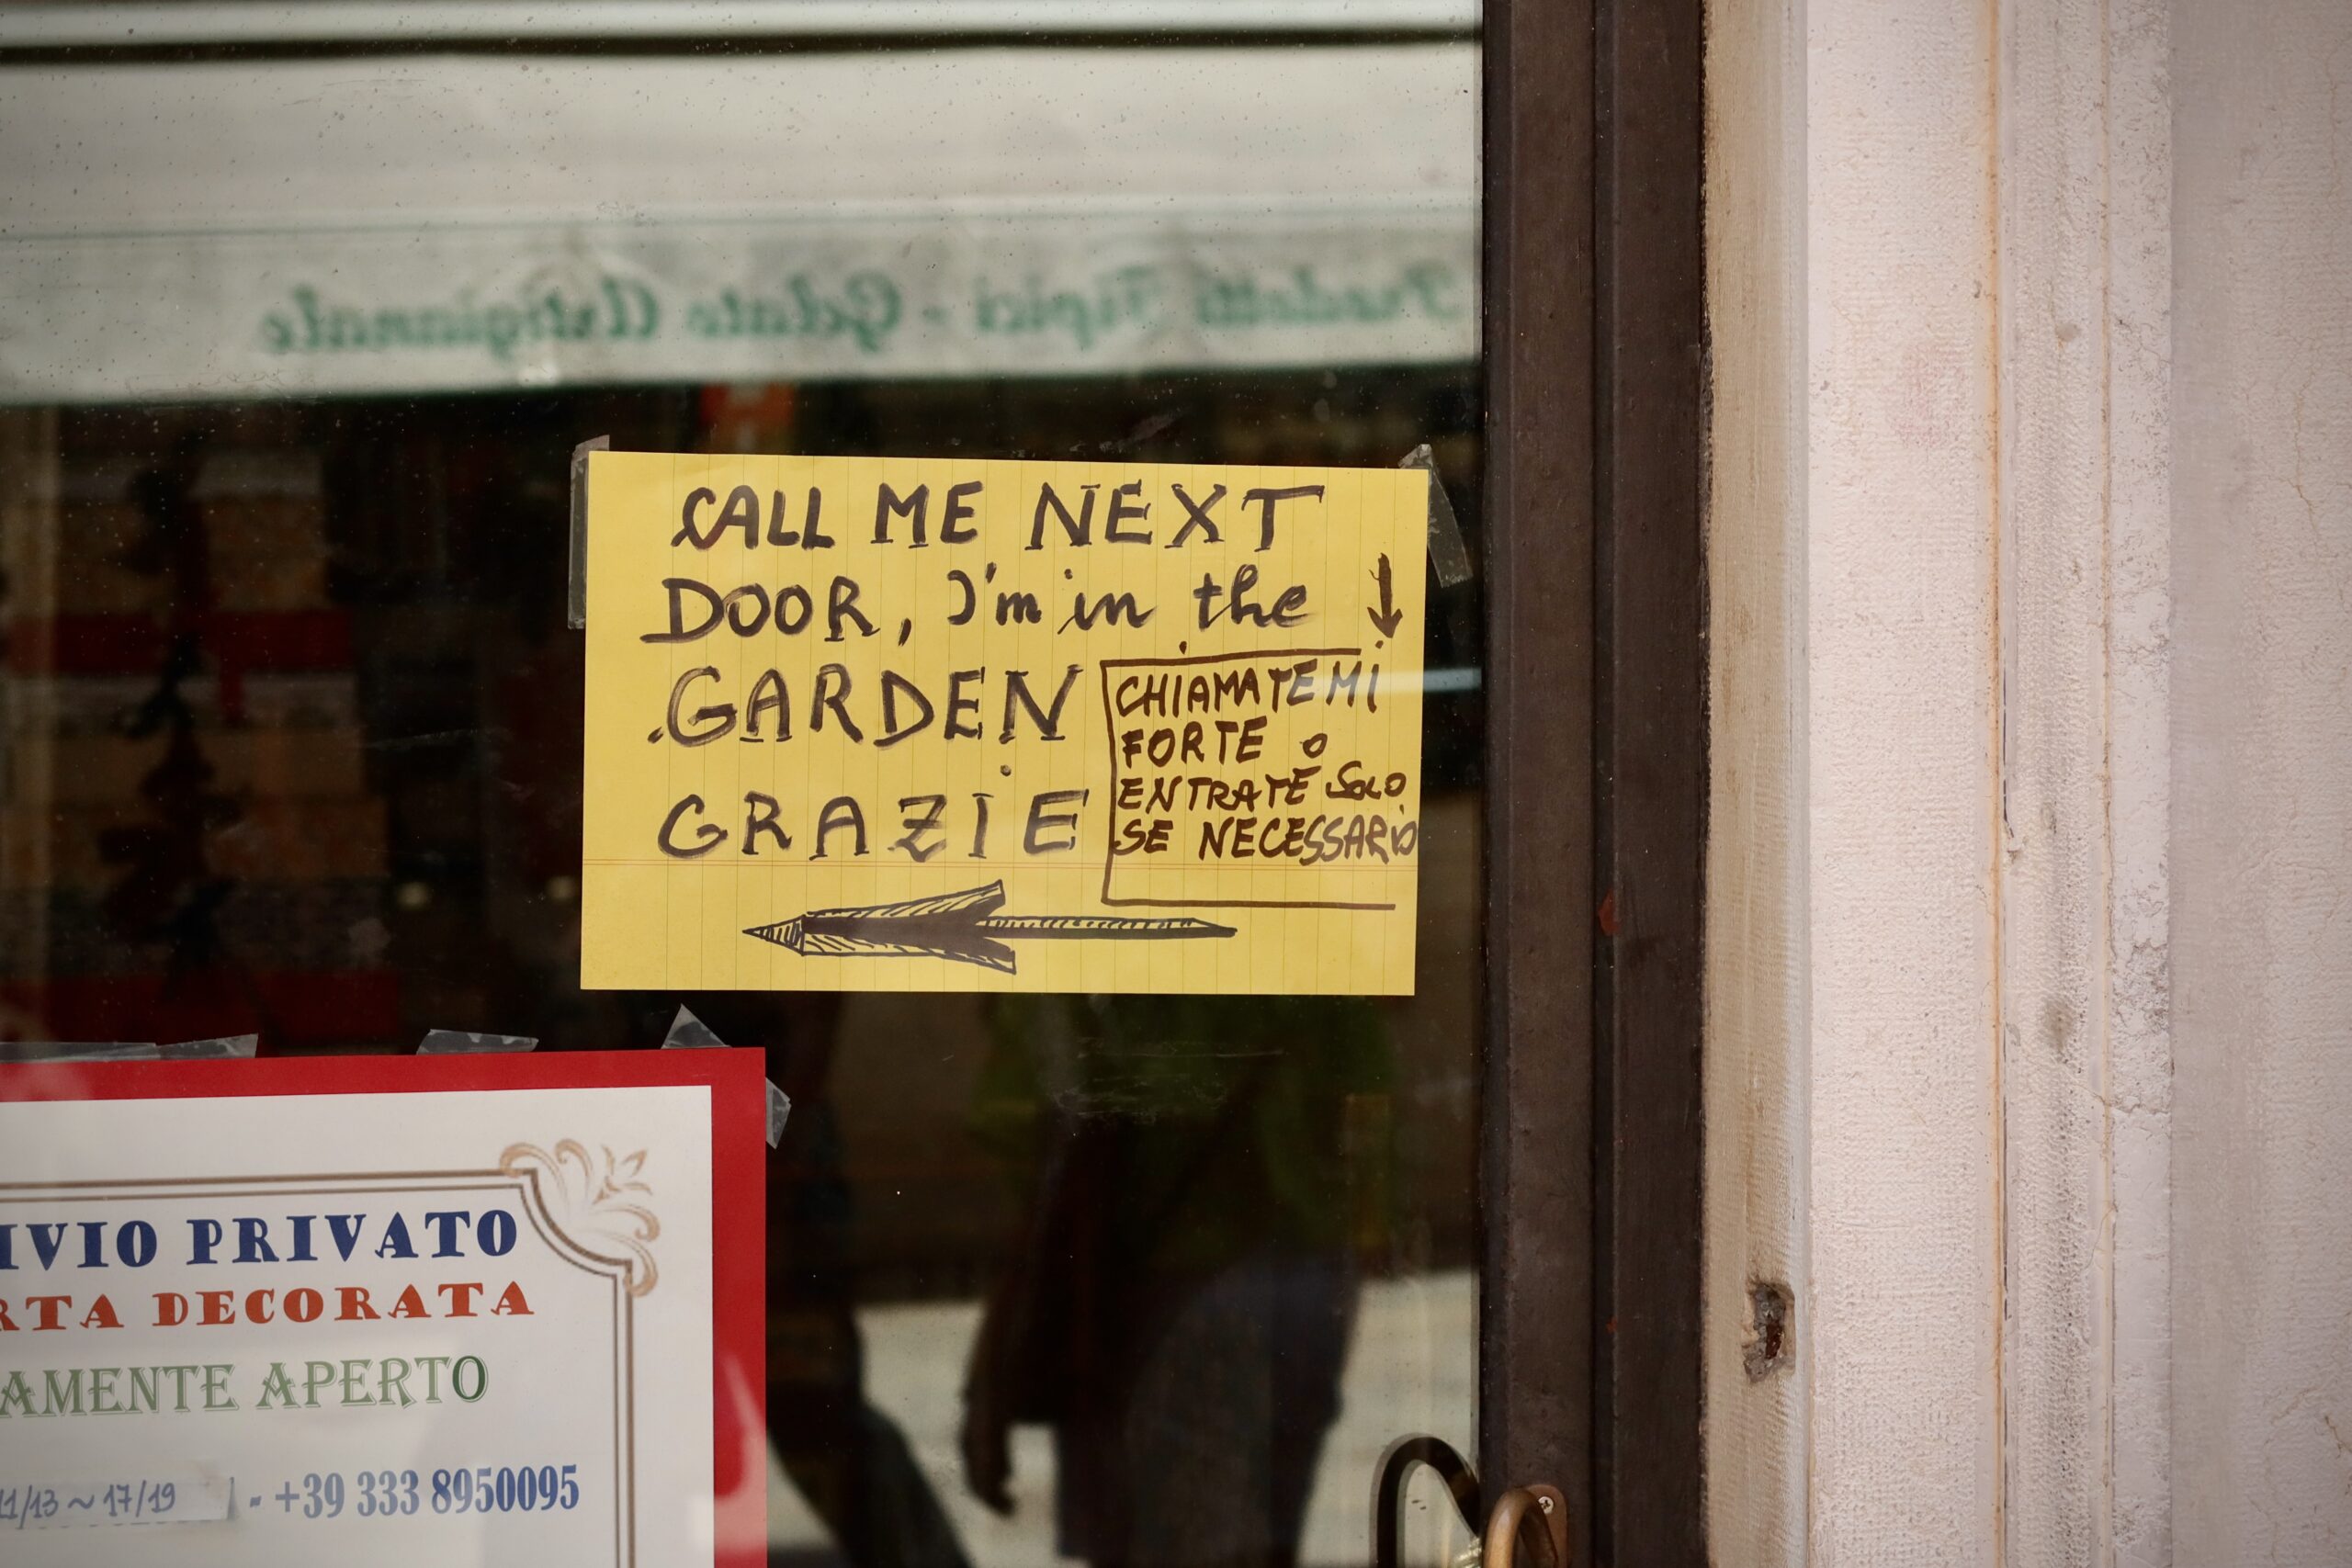 Prodotti Tipici - Gelato Artigianale
CALL ME NEXT
DOOR, I'm in the
GARDEN
GRAZIE
CHIAMATEMI
FORTE O
ENTRATE SOLO
SE NECESSARIO
IVIO PRIVATO
RTA DECORATA
AMENTE APERTO
11/13 ~ 17/19 - +39 333 8950095